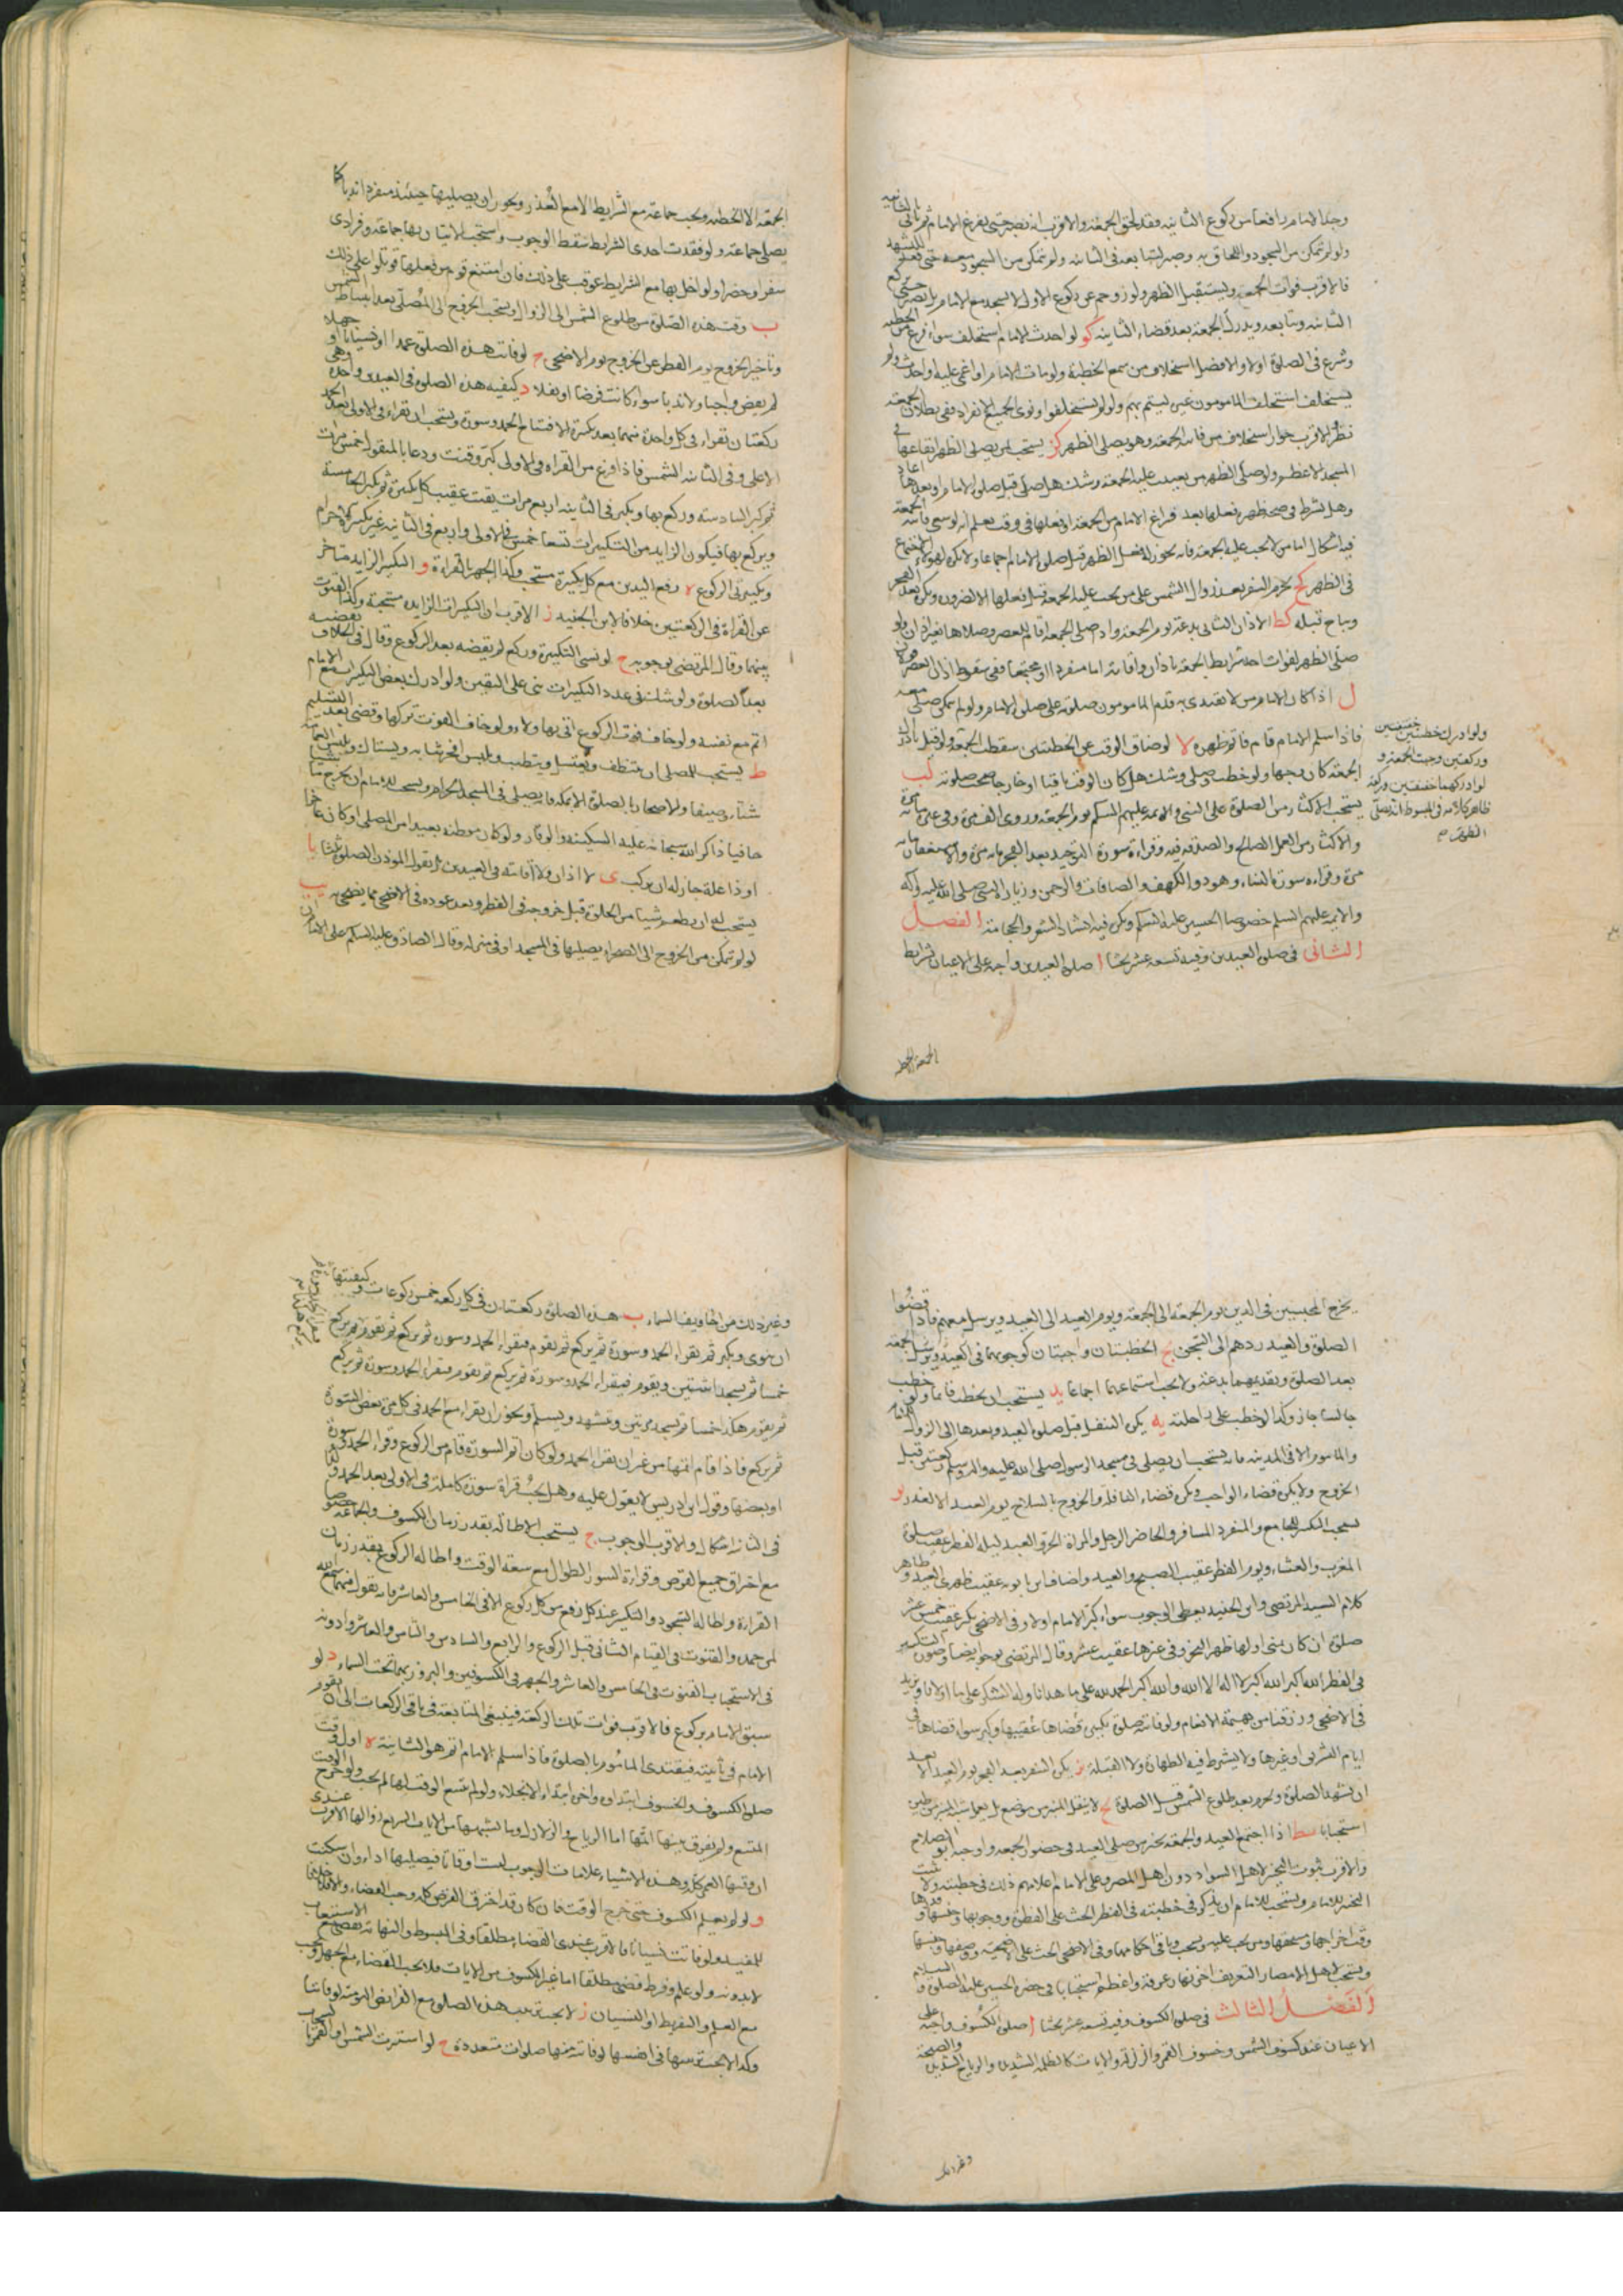 وجد الامام رافعا من ركوع الثانيه فقد لحق الجمعة والاقرب انه يصبر حتى يفرغ الامام ثم ياتي بالثانية
ولو لم يتمكن من السجود واللحاق به وصبر لتتابعه في الثانيه ولم يتمكن من السجود معه حتى قعد للتشهد
فالاقرب فوات الجمعة ويستقبل الظهر ولو زوحم عن ركوع الاولى لا يسجد مع الامام بل يصبر حتى يركع
الثانيه ويتابعه ويدرك الجمعة بعد قضاء الثانيه كو لو احدث الامام استخلف سواء فرغ من الخطبة
وشرع في الصلوة اولا والافضل استخلاف من سمع الخطبة ولو مات الامام او اغمي عليه او احدث ولم
يستخلف استخلف المامومون غيره ليتم بهم ولو لم يستخلفوا ونوى الجميع الانفراد ففي بطلان الجمعة
نظر والاقرب جواز استخلاف من فاته الجمعة وهو يصلي الظهر كز يستحب لمن يصلي الظهر ايقاعها في
المسجد الاعظم ولو صلى الظهر من يجب عليه الجمعة وشك هل صلى قبل صلوة الامام او بعدها اعاد
وهل يشترط في صحة ظهره فعلها بعد فراغ الامام من الجمعة او فعلها في وقت يعلم انه لو سعى فاته الجمعة
فيه اشكال اما من لا يجب عليه الجمعة فانه يجوز له فعل الظهر قبل صلوة الامام اجماعا ولا يكره لهؤلاء الاجتماع
في الظهر كح يحرم السفر بعد زوال الشمس على من يجب عليه الجمعة قبل فعلها الا لضرورة ويكره بعد الفجر
ويباح قبله كط الاذان الثاني بدعة يوم الجمعة واذا صلى الجمعة اقام للعصر وصلاها بغير اذان ولو
صلى الظهر لفوات احد شرايط الجمعة باذان واقامة اما منفردا او مجتمعا ففي سقوط اذان العصر قولان
ل اذا كان الامام ممن لا يقتدى به قدم المامومون صلوته على صلوة الامام ولو لم يتمكن صلى معه
فاذا سلم الامام قام فاتم ظهره لا لو ضاق الوقت عن الخطبتين سقطت الجمعة ولو قيل بادراك
الجمعة كان وجها ولو خطب وصلى وشك هل كان الوقت باقيا او خارجا صحت صلوته لب
يستحب الاكثار من الصلوة على النبي والائمة عليهم السلم يوم الجمعة وروى الف مرة وفي غيره مائة مرة
والاكثار من العمل الصالح والصدقة فيه وقراءة سورة التوحيد بعد الفجر مائة مرة والاستغفار مائة
مرة وقراءة سورة النساء وهود والكهف والصافات والرحمن وزيارة النبي صلى الله عليه وآله
والائمة عليهم السلم خصوصا الحسين عليه السلم ويكره فيه انشاد الشعر والحجامة الفصل
الثاني في صلوة العيدين وفيه تسعة عشر بحثا ا صلوة العيدين واجبة على الاعيان بشرايط
ولو ادرك خطبتين خفيفتين
وركعتين وجبت الجمعة و
لو ادركهما خفيفتين وركعة
ظاهر كلامه في المبسوط انه يصلي
الظهر
الجمعة الا الخطبة
الجمعة الا الخطبة ويجب جماعة مع الشرايط الا مع العذر ويجوز ان يصليها حينئذ منفردا ندبا كما
يصلي جماعة ولو فقدت احدى الشرايط سقط الوجوب واستحب الاتيان بها جماعة وفرادى
سفرا وحضرا ولو اخل بها مع الشرايط عوقب على ذلك فان امتنع قوم من فعلها قوتلوا على ذلك
ب وقت هذه الصلوة من طلوع الشمس الى الزوال ويستحب الخروج الى المصلى بعد انبساط الشمس
وتاخير الخروج يوم الفطر عن الخروج يوم الاضحى ج لو فاتت هذه الصلوة عمدا او نسيانا او جهلا
لم يقض واجبا ولا ندبا سواء كانت فرضا او نفلا د كيفية هذه الصلوة في العيدين واحدة وهي
ركعتان تقراء في كل واحدة منهما بعد تكبيرة الافتتاح الحمد وسورة ويستحب ان تقراء في الاولى بعد الحمد
الاعلى وفي الثانيه الشمس فاذا فرغ من القراءة في الاولى كبر وقنت ودعا بالمنقول خمس مرات
ثم كبر السادسة وركع بها ويكبر في الثانيه اربع مرات يقنت عقيب كل تكبيرة ثم يكبر الخامسة
ويركع بها فيكون الزايد من التكبيرات تسعا خمس في الاولى واربع في الثانيه غير تكبيرة الاحرام
وتكبيرتي الركوع ه رفع اليدين مع كل تكبيرة مستحب وكذا الجهر بالقراءة و التكبير الزايد متاخر
عن القراءة في الركعتين خلافا لابن الجنيد ز الاقرب ان التكبيرات الزايدة مستحبة وكذا القنوت
بينهما وقال المرتضى بوجوبه ح لو نسي التكبيرة وركع لم يقضه بعد الركوع وقال في الخلاف يقضيه
بعد الصلوة ولو شك في عدد التكبيرات بنى على اليقين ولو ادرك بعض التكبيرات مع الامام
اتم مع نفسه ولو خاف فوت الركوع اتى بها ولاء ولو خاف الفوت تركها وقضى بعد التسليم
ط يستحب للمصلي ان يتنظف ويغتسل ويتطيب ويلبس افخر ثيابه ويستاك ويلبس العمامة
شتاء وصيفا والاصحار بالصلوة الا بمكة فانه يصلي في المسجد الحرام ويستحب للامام ان يخرج ماشيا
حافيا ذاكرا لله سبحانه عليه السكينة والوقار ولو كان موطنه بعيدا من المصلى او كان عاجزا
او ذا علة جاز له ان يركب ى لا اذان ولا اقامة في العيدين بل يقول المؤذن الصلوة ثلثا يا
يستحب له ان يطعم شيئا من الحلاوة قبل خروجه في الفطر وبعد عوده في الاضحى مما يضحي به يب
لو لم يتمكن من الخروج الى الصحراء يصليها في المسجد او في منزله وقال الصادق عليه السلم على الامام ان
يخرج المحبسين في الدين يوم الجمعة الى الجمعة ويوم العيد الى العيد ويرسل معهم فاذا قضوا
الصلوة والعيد ردهم الى السجن يج الخطبتان واجبتان كوجوبهما في الجمعة
بعد الصلوة وتقديمهما بدعة ولا يجب استماعهما اجماعا يد يستحب ان يخطب قائما ولو خطب
جالسا جاز وكذا لو خطب على راحلته يه يكره التنفل قبل صلوة العيد وبعدها الى الزوال للامام
والماموم الا في المدينة فانه يستحب ان يصلي في مسجد الرسول صلى الله عليه وآله وسلم ركعتين قبل
الخروج ولا يكره قضاء الواجب ويكره قضاء النافلة والخروج بالسلاح يوم العيد الا لعذر يو
يستحب التكبير للجامع والمنفرد المسافر والحاضر الرجل والمراة الحر والعبد ليلة الفطر عقيب صلوة
المغرب والعشاء ويوم الفطر عقيب الصبح والعيد واضاف ابن بابويه عقيب ظهري العيد وظاهر
كلام السيد المرتضى وابن الجنيد يعطي الوجوب سواء كبر الامام اولا وفي الاضحى يكبر عقيب خمس عشر
صلوة ان كان بمنى اولها ظهر النحر وفي غيرها عقيب عشر وقال المرتضى بوجوبه ايضا وصورة التكبير
في الفطر الله اكبر الله اكبر لا اله الا الله والله اكبر الحمد لله على ما هدانا وله الشكر على ما اولانا ويزيد
في الاضحى ورزقنا من بهيمة الانعام ولو فاتته صلوة يكبر قضاها عقيبها وكبر سواء قضاها في
ايام التشريق او غيرها ولا يشترط فيه الطهارة ولا القبلة يز يكره السفر بعد الفجر يوم العيد الا بعد
ان يشهد الصلوة ويحرم بعد طلوع الشمس قبل الصلوة يح لا ينقل المنبر من موضعه بل يعمل شبه المنبر من طين
استحبابا يط اذا اجتمع العيد والجمعة تخير من صلى العيد في حضور الجمعة واوجبه ابو الصلاح
والاقرب ثبوت التخيير لاهل السواد دون اهل المصر وعلى الامام اعلامهم ذلك في خطبته ولا يثبت
التخيير للامام ويستحب للامام ان يذكر في خطبته في الفطر الحث على الفطرة ووجوبها وجنسها وقدرها و
وقت اخراجها ومستحقها ومن يجب عليه ويستحب وباقي احكامها وفي الاضحى الحث على الاضحية ووصفها وجنسها
ويستحب لاهل الامصار التعريف اخر نهار عرفة واعظم استحبابا في حضرة الحسين عليه الصلوة و السلام
الفصل الثالث في صلوة الكسوف وفيه تسعة عشر بحثا ا صلوة الكسوف واجبة على
الاعيان عند كسوف الشمس وخسوف القمر والزلزلة والايات كالظلمة الشديدة والرياح الشديدة والصيحة
وغير ذلك
وغير ذلك من اخاويف السماء ب هذه الصلوة ركعتان في كل ركعة خمس ركوعات وكيفيتها
ان ينوي ويكبر ثم يقراء الحمد وسورة ثم يركع ثم يقوم فيقراء الحمد وسورة ثم يركع ثم يقوم ثم يركع
خمسا ثم يسجد اثنتين ويقوم فيقراء الحمد وسورة ثم يركع ثم يقوم فيقراء الحمد وسورة ثم يركع
ثم يقوم هكذا خمسا ثم يسجد مرتين ويتشهد ويسلم ويجوز ان يقراء مع الحمد في كل مرة بعض السورة
ثم يركع فاذا قام اتمها من غير ان يقراء الحمد ولو كان اتم السورة قام من الركوع وقراء الحمد وسورة
او بعضها وقول ابن ادريس لا يعول عليه وهل يجب قراءة سورة كاملة في الاولى بعد الحمد وكذا
في الثانية اشكال والاقرب الوجوب ج يستحب الاطالة بقدر زمان الكسوف والجماعة خصوصا
مع احتراق جميع القرص وقراءة السور الطوال مع سعة الوقت واطالة الركوع بقدر زمان
القراءة واطالة السجود والتكبير عند كل رفع من كل ركوع الا في الخامس والعاشر فانه يقول فيهما سمع الله
لمن حمده والقنوت في القيام الثاني قبل الركوع والرابع والسادس والثامن والعاشر وادونه
في الاستحباب القنوت في الخامس والعاشر والجهر في الكسوفين والبروز بهما تحت السماء د لو
سبق الامام بركوع فالاقرب فوات تلك الركعة فينبغي المتابعة في باقي الركعات الى ان يقوم
الامام في ثانيته فيقتدي الماموم بالصلوة فاذا سلم الامام اتم هو الثانية ه اول وقت
صلوة الكسوف والخسوف ابتداؤه واخره ابتداء الانجلاء ولو لم يتسع الوقت لها لم يجب ولو خرج الوقت
المتسع ولم يفرق بينها اتمها اما الرياح والزلازل وما اشبهها من الايات السريع زوالها الاقرب عندي
ان وقتها العمر كله وهذه الاشياء علامات الوجوب ليست اوقاتا فيصليها اداء وان سكنت
و لو لم يعلم الكسوف حتى خرج الوقت فان كان قد احترق القرص كله وجب القضاء والا فلا خلافا
للمفيد ولو فاتت نسيانا فالاقرب عندي القضاء مطلقا وفي المبسوط والنهاية يقضي مع الاستيعاب
لا بدونه ولو علم وفرط قضى مطلقا اما غير الكسوف من الايات فلا يجب القضاء مع الجهل ويجب
مع العلم والتفريط او النسيان ز لا يجب ترتيب هذه الصلوة مع الفرايض اليومية لو فاتتا
وكذا لا يجب ترتيبها في انفسها لو فاتته منها صلوات متعددة ح لو استترت الشمس او القمر